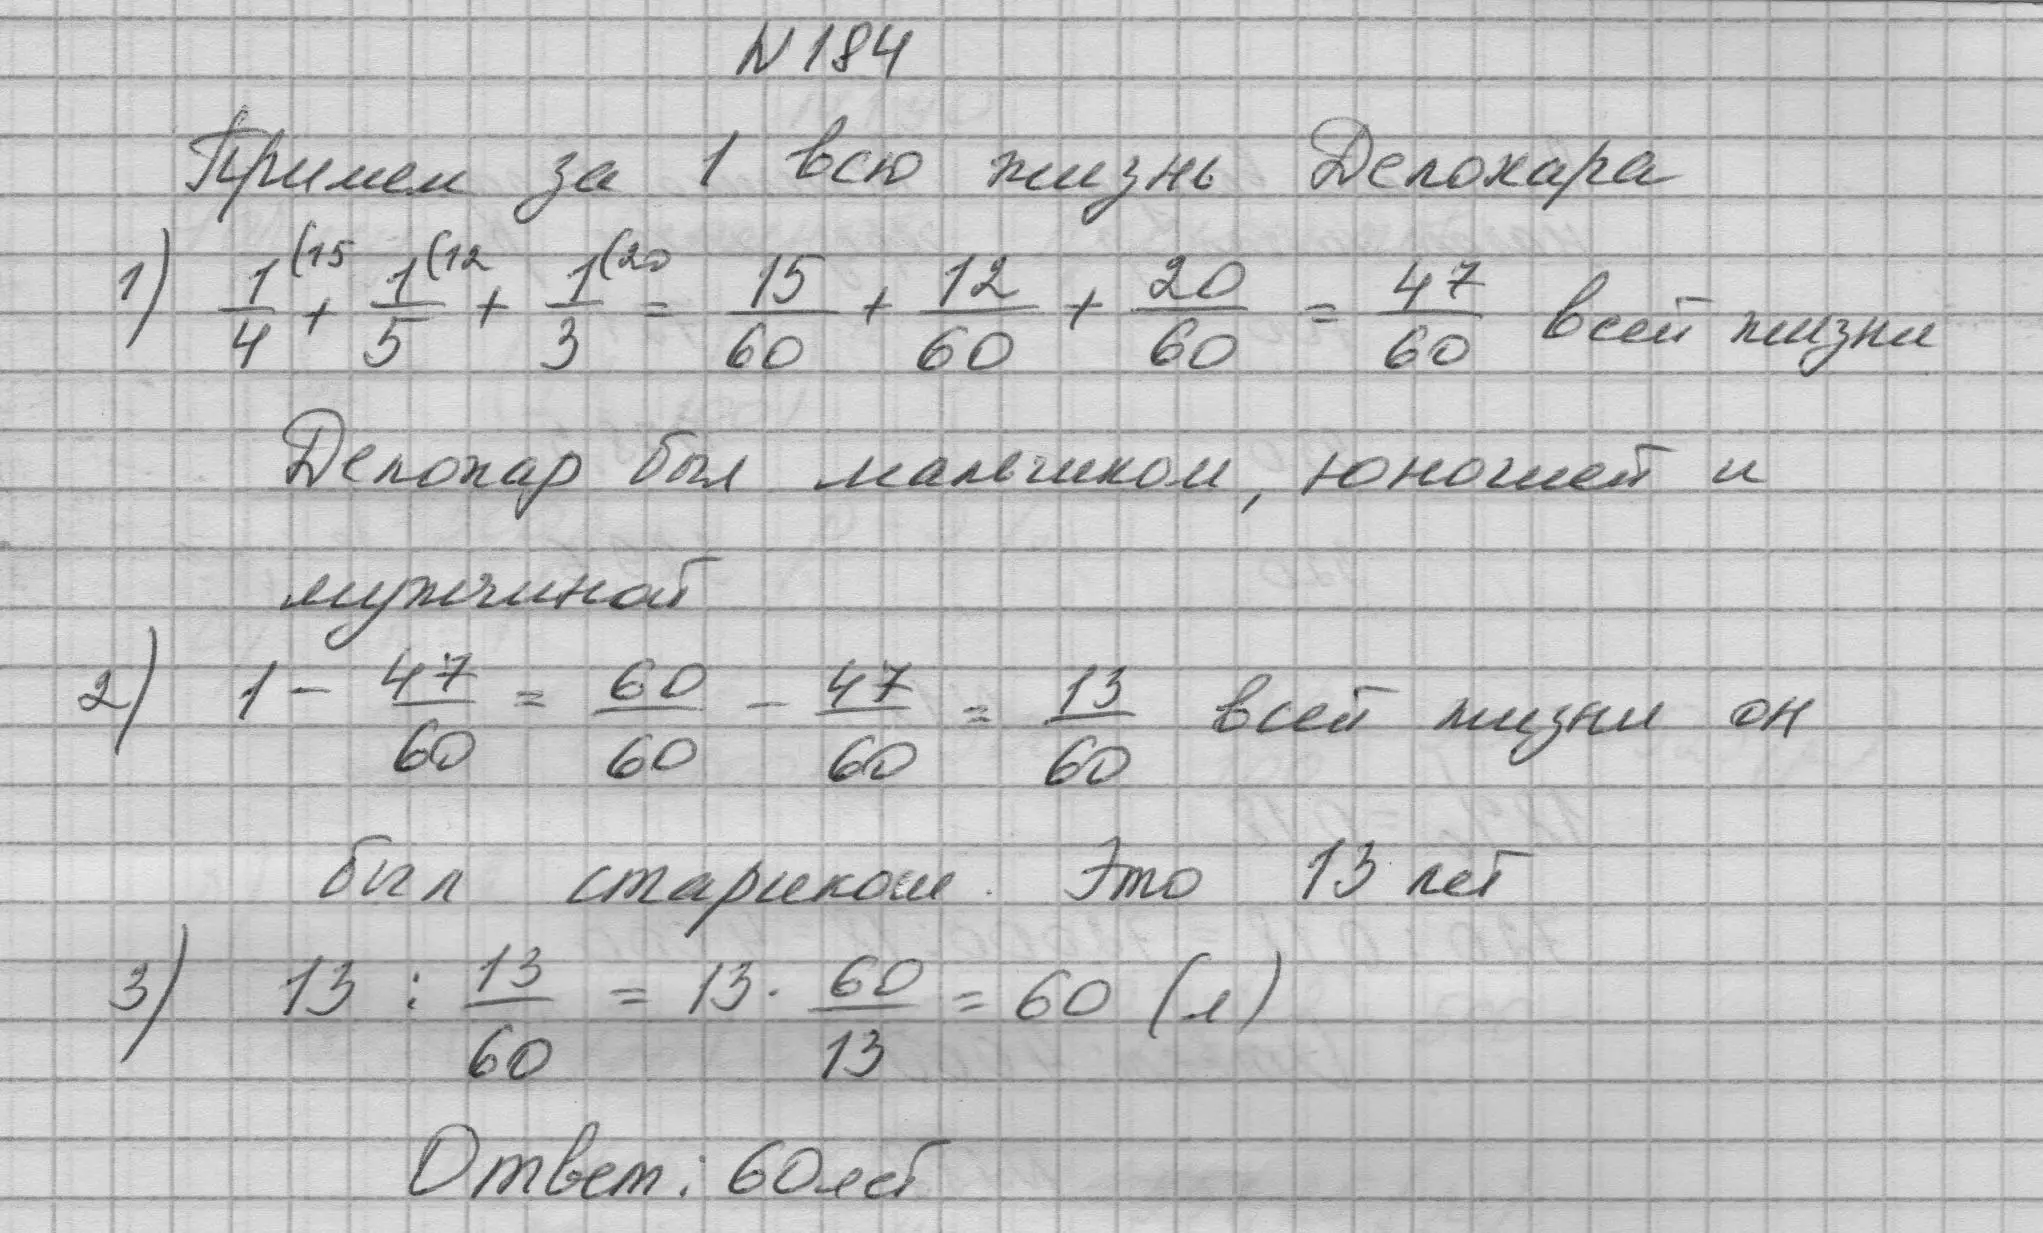 №184
Примем за 1 всю жизнь Демохара
1) 1/4 (15 + 1/5 (12 + 1/3 (20 = 15/60 + 12/60 + 20/60 = 47/60 всей жизни
Демохар был мальчиком, юношей и
мужчиной
2) 1 - 47/60 = 60/60 - 47/60 = 13/60 всей жизни он
был стариком. Это 13 лет
3) 13 : 13/60 = 13 · 60/13 = 60 (л)
Ответ: 60 лет